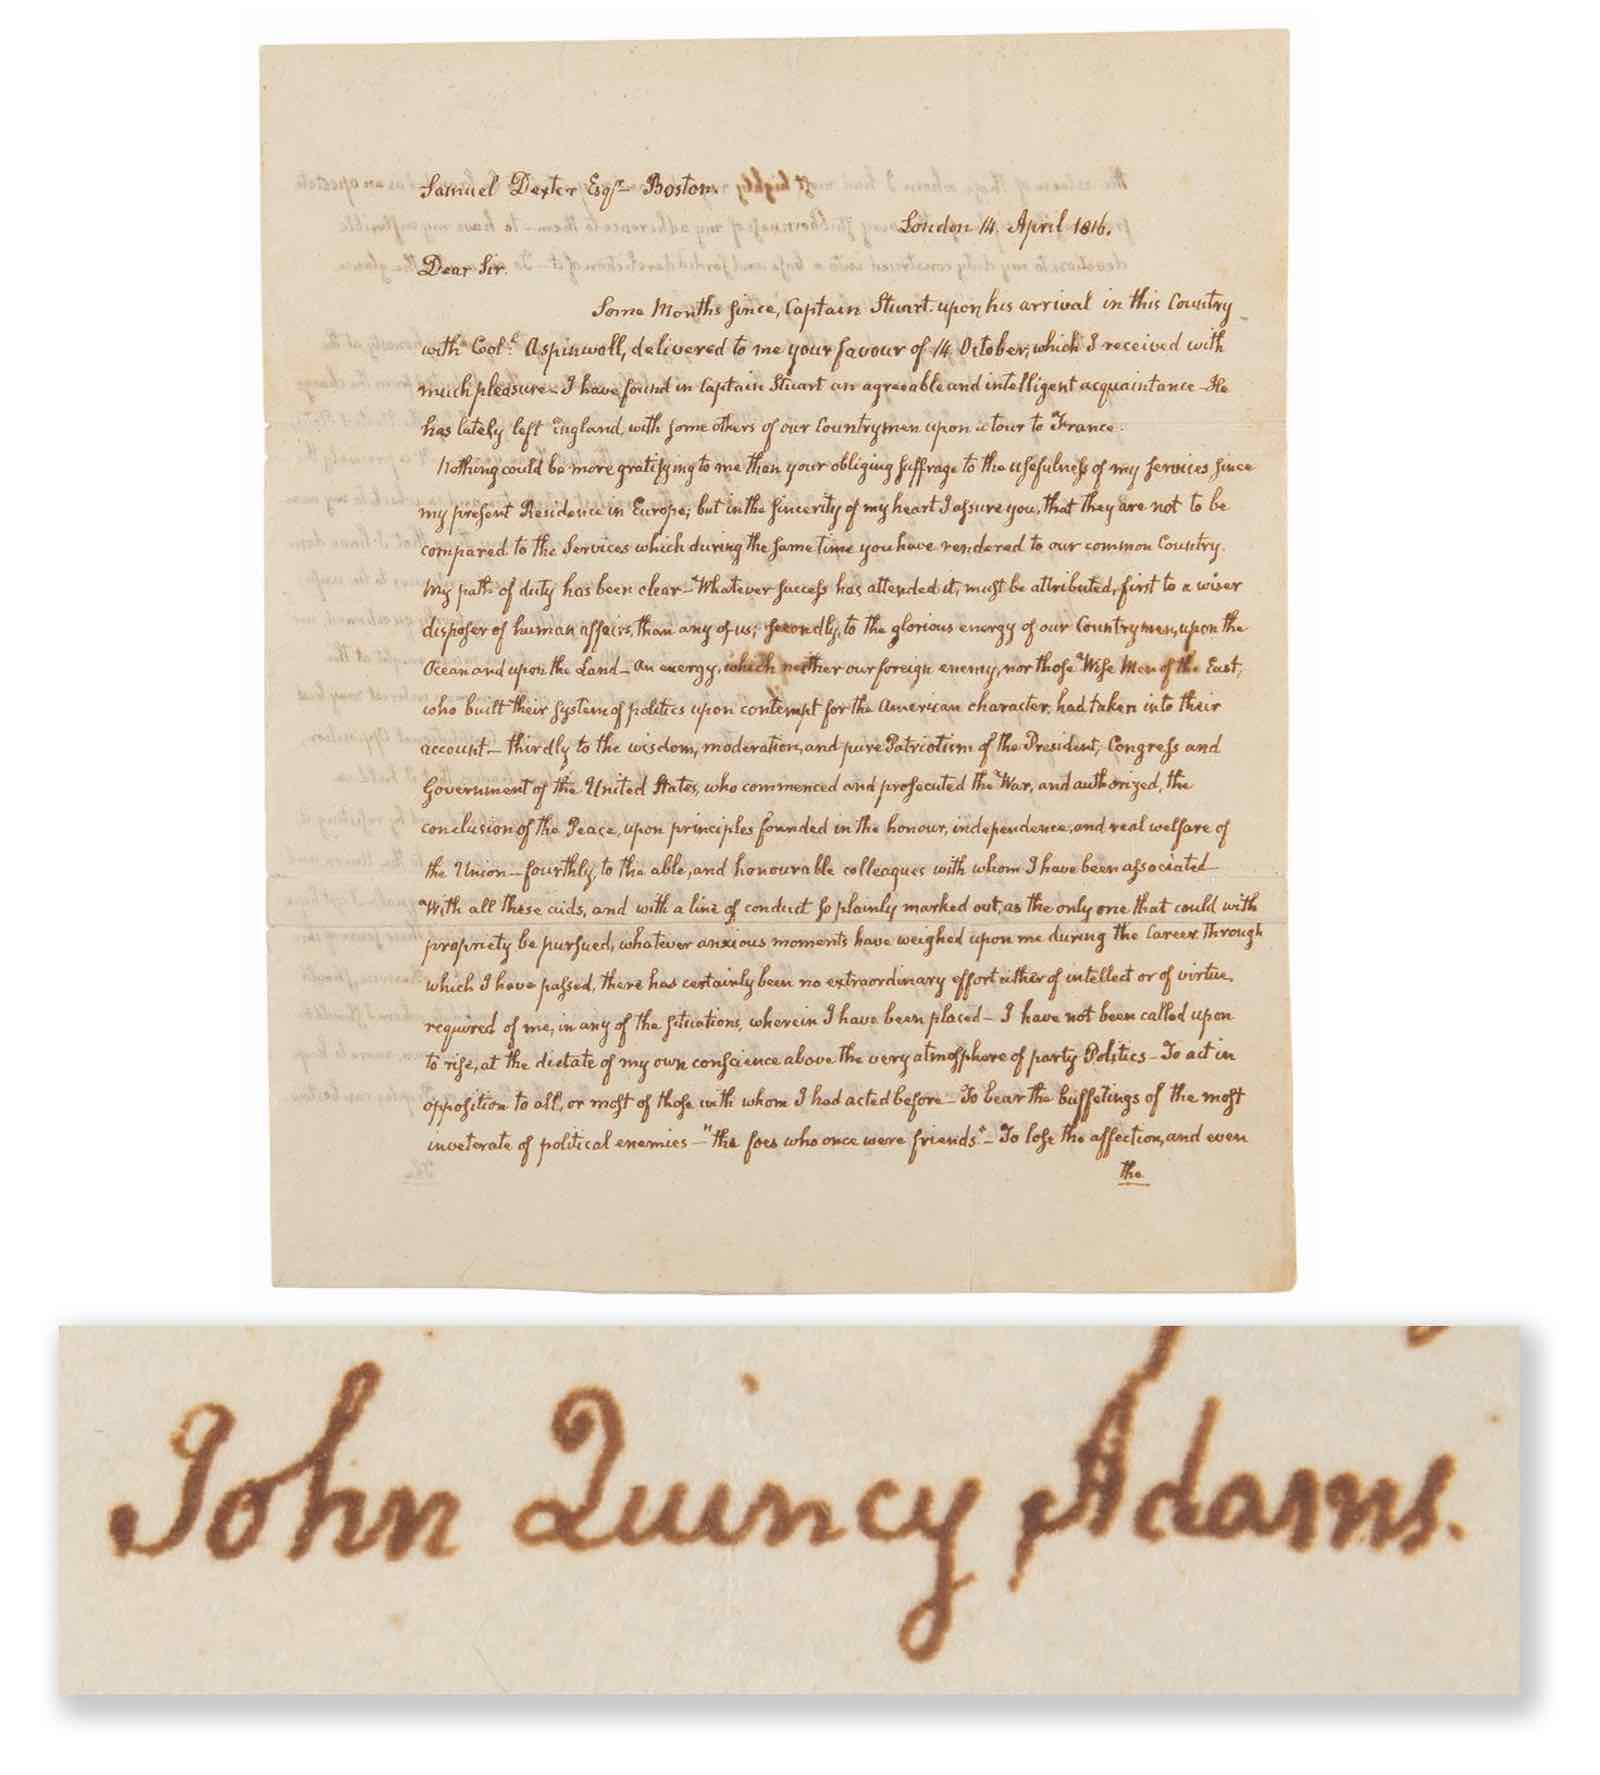 Samuel Dexter Esqr. Boston.
London 14. April 1816.
Dear Sir.
Some Months since, Captain Stuart. upon his arrival in this Country
with Coll. Aspinwall, delivered to me your favour of 14 October, which I received with
much pleasure - I have found in Captain Stuart an agreeable and intelligent acquaintance - He
has lately left England, with some others of our Countrymen upon a tour to France.
Nothing could be more gratifying to me than your obliging suffrage to the usefulness of my services since
my present Residence in Europe; but in the sincerity of my heart I assure you, that they are not to be
compared to the Services which during the same time you have rendered to our common Country.
My path of duty has been clear - Whatever success has attended it, must be attributed, first to a wiser
disposer of human affairs, than any of us; secondly, to the glorious energy of our Countrymen, upon the
Ocean and upon the Land - An energy, which neither our foreign enemy, nor those Wise Men of the East,
who built their system of politics upon contempt for the American character, had taken into their
account - thirdly to the wisdom, moderation, and pure Patriotism of the President, Congress and
Government of the United States, who commenced and prosecuted the War, and authorized, the
conclusion of the Peace, upon principles founded in the honour, independence, and real welfare of
the Union - fourthly, to the able, and honourable colleagues with whom I have been associated -
With all these aids, and with a line of conduct so plainly marked out, as the only one that could with
propriety be pursued, whatever anxious moments have weighed upon me during the Career through
which I have passed, there has certainly been no extraordinary effort either of intellect or of virtue,
required of me, in any of the situations, wherein I have been placed - I have not been called upon
to rise, at the dictate of my own conscience above the very atmosphere of party Politics - To act in
opposition to all, or most of those with whom I had acted before - To bear the buffetings of the most
inveterate of political enemies - "the foes who once were friends" - To lose the affection, and even
the
John Quincy Adams.